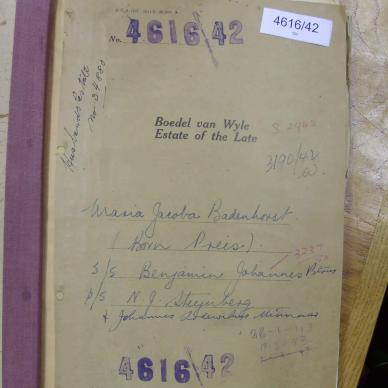 4616/42
No. 4616/42
Husbands Estate
No 34880
Boedel van Wyle
Estate of the Late
S 2462
3190/42
Maria Jacoba Badenhorst
(Born Preis).
3237
S/S Benjamin Johannes
P/S N. J. Steynberg
& Johannes
4616/42